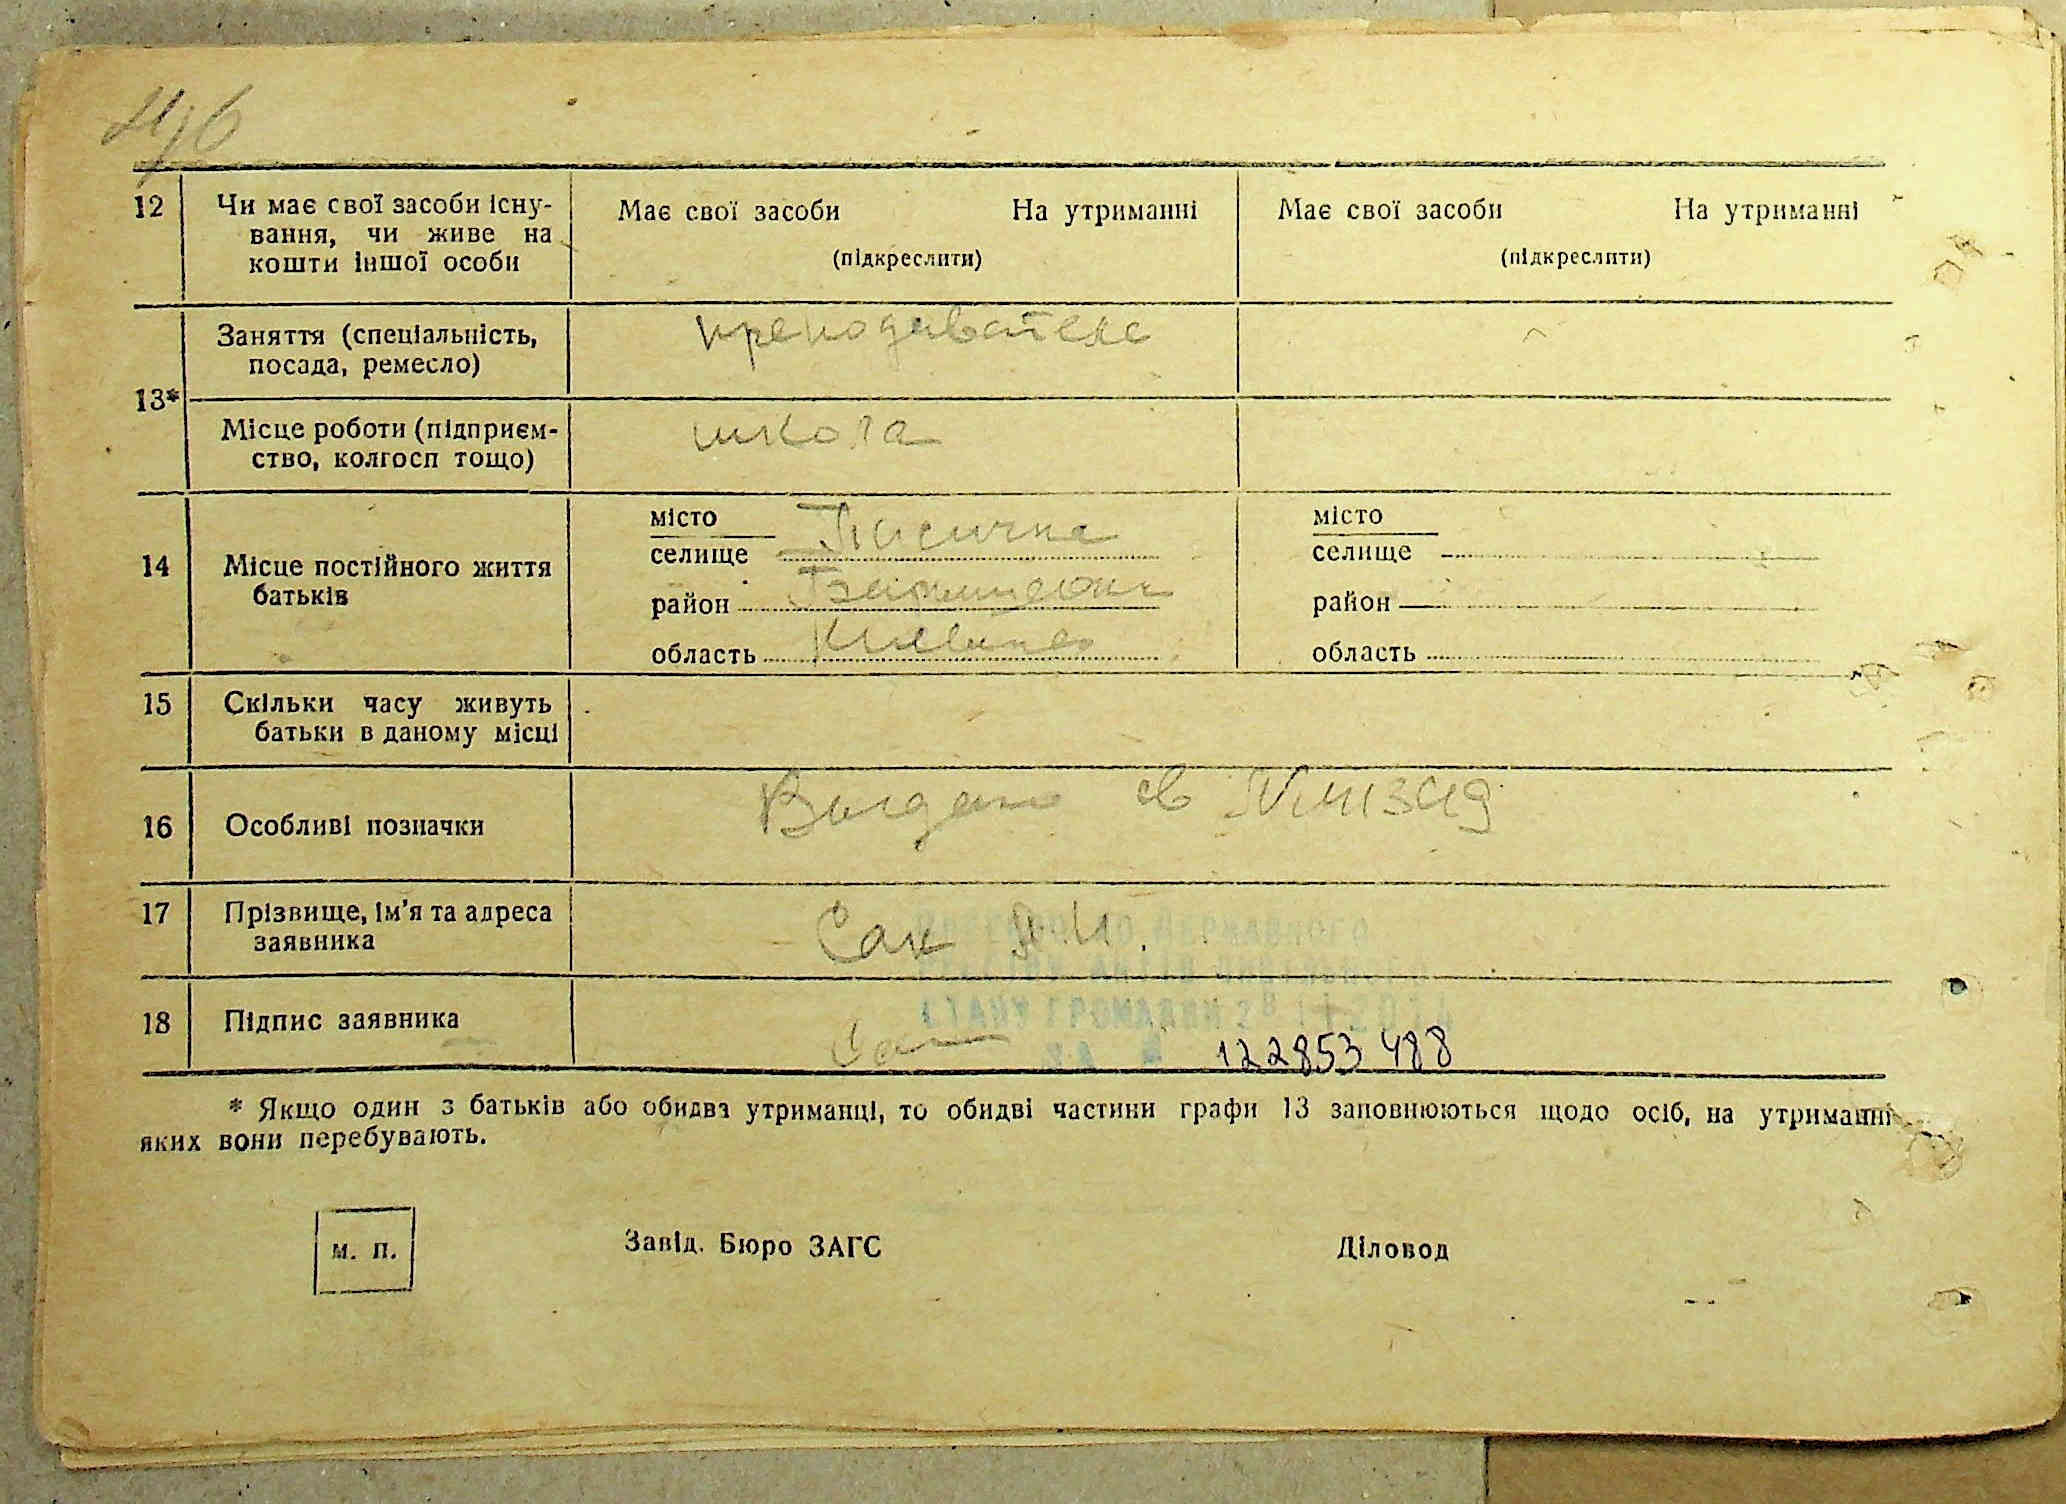 12
Чи має свої засоби існу-
вання, чи живе на
кошти іншої особи
Має свої засоби На утриманні
(підкреслити)
Має свої засоби На утриманні
(підкреслити)
13*
Заняття (спеціальність,
посада, ремесло)
преподаватель
Місце роботи (підприєм-
ство, колгосп тощо)
школа
14
Місце постійного життя
батьків
місто
селище
район
область
місто
селище
район
область
15
Скільки часу живуть
батьки в даному місці
16
Особливі позначки
Выдано св
17
Прізвище, ім’я та адреса
заявника
Сак
18
Підпис заявника
ДЕРЖАВНОГО
СТАНУ ГРОМАДЯН
ЗА №
122853488
* Якщо один з батьків або обидва утриманці, то обидві частини графи 13 заповнюються щодо осіб, на утриманні
яких вони перебувають.
м. п.
Завід. Бюро ЗАГС
Діловод